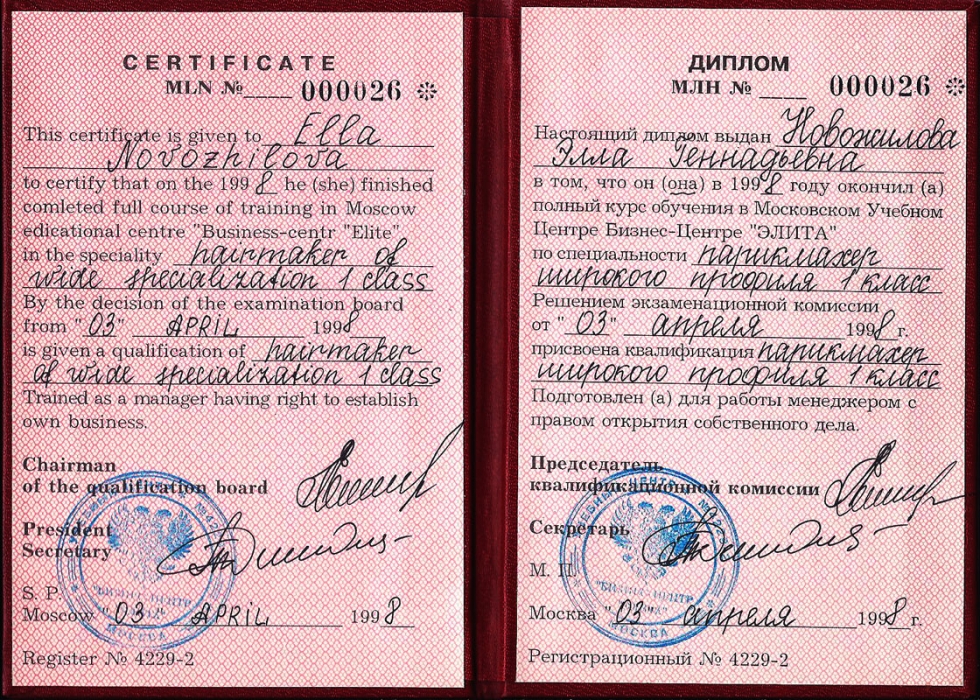 CERTIFICATE
MLN №____ 000026 *
This certificate is given to Ella
Novozhilova
to certify that on the 1998 he (she) finished
comleted full course of training in Moscow
edicational centre "Business-centr "Elite"
in the speciality hairmaker of
wide specialization 1 class
By the decision of the examination board
from "03" APRIL 1998
is given a qualification of hairmaker
of wide specialization 1 class
Trained as a manager having right to establish
own business.
Chairman
of the qualification board
President
Secretary
S. P.
Moscow "03 APRIL 1998
Register № 4229-2
БИЗНЕС-ЦЕНТР
МОСКВА
ДИПЛОМ
МЛН № ____ 000026 *
Настоящий диплом выдан Новожилова
Элла Геннадьевна
в том, что он (она) в 1998 году окончил (а)
полный курс обучения в Московском Учебном
Центре Бизнес-Центре "ЭЛИТА"
по специальности парикмахер
широкого профиля 1 класс
Решением экзаменационной комиссии
от "03" апреля 1998 г.
присвоена квалификация парикмахер
широкого профиля 1 класс
Подготовлен (а) для работы менеджером с
правом открытия собственного дела.
Председатель
квалификационной комиссии
Секретарь
М. П.
Москва "03" апреля 1998 г.
Регистрационный № 4229-2
БИЗНЕС-ЦЕНТР
МОСКВА